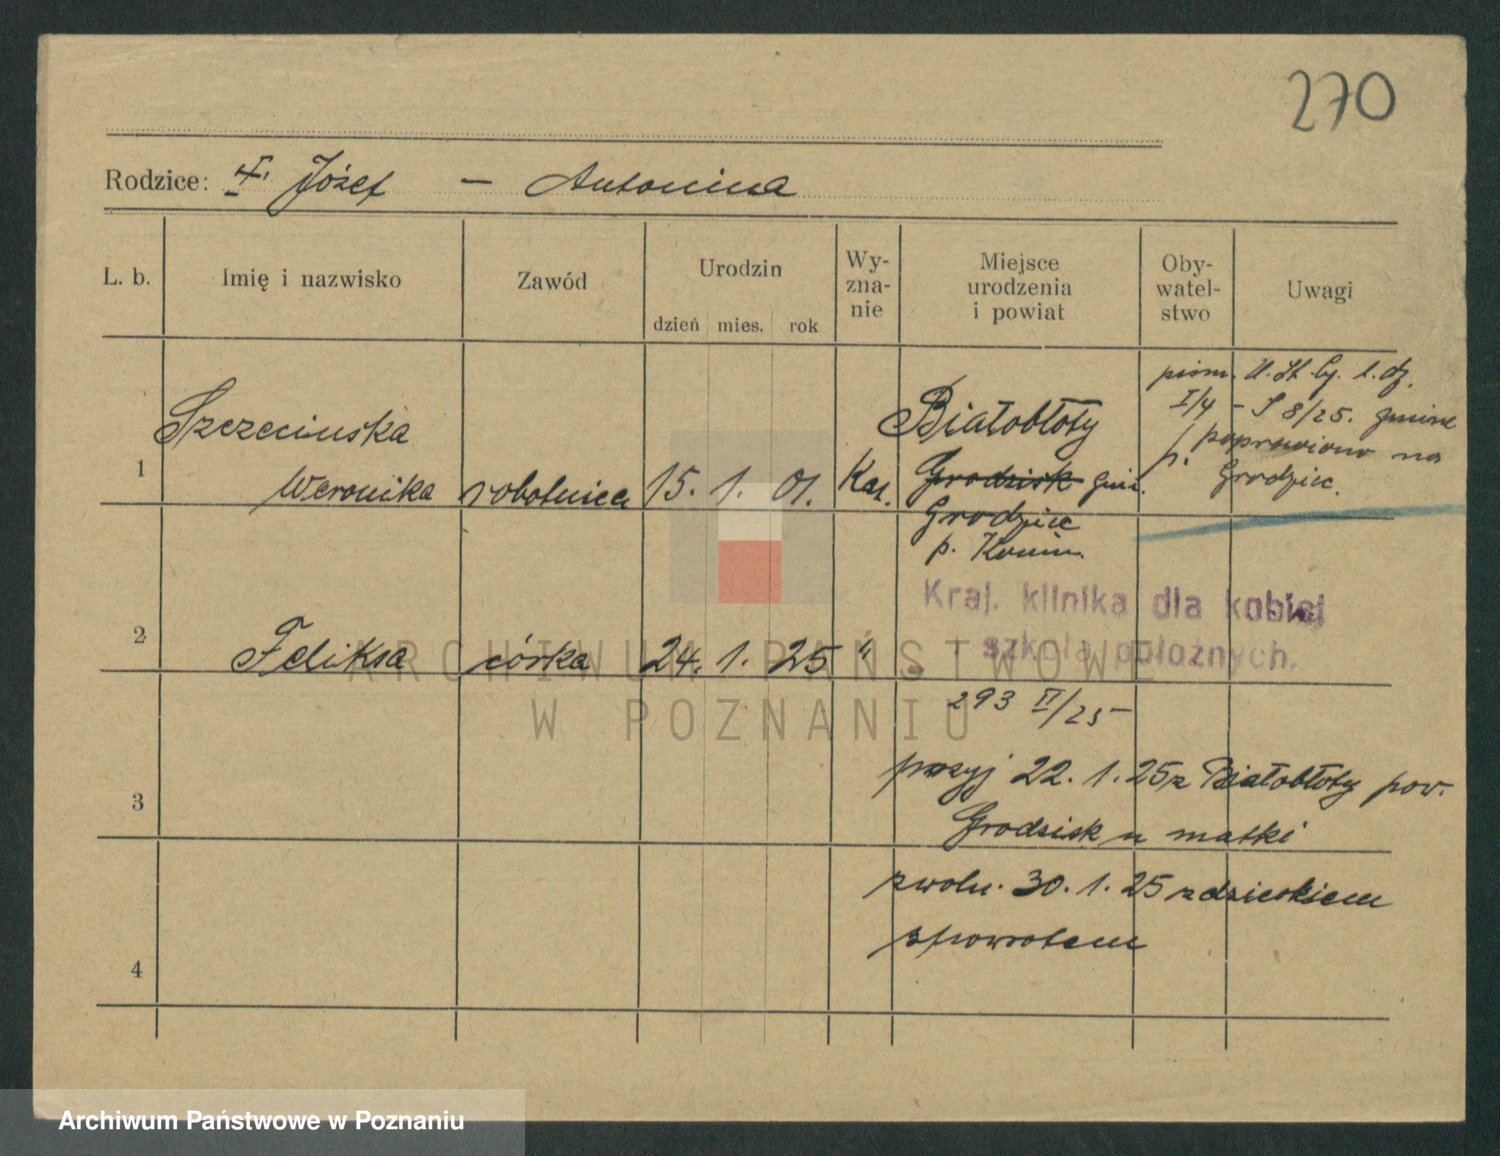 270
Rodzice: I. Józef — Antonina
L. b.
Imię i nazwisko
Zawód
Urodzin
dzień mies. rok
Wy-
zna-
nie
Miejsce
urodzenia
i powiat
Oby-
watel-
stwo
Uwagi
1
Szczecinska
Weronika
robotnica
15. 1. 01.
Kat.
Białobłoty
Grodzisk gmi.
Grodziec
p. Konin.
pism. U. St. Cy. l. dz.
I/4 - S 8/25. gmine
p. poprawiono na
Grodziec.
2
Feliksa
córka
24. 1. 25
"
Kraj. klinika dla kobiej
i szkoła położnych.
293 II/25
3
przyj 22. 1. 25 z Białobłoty pow.
Grodzisk u matki
zwoln. 30. 1. 25 z dzieckiem
4
spowrotem
ARCHIWUM PAŃSTWOWE
W POZNANIU
Archiwum Państwowe w Poznaniu